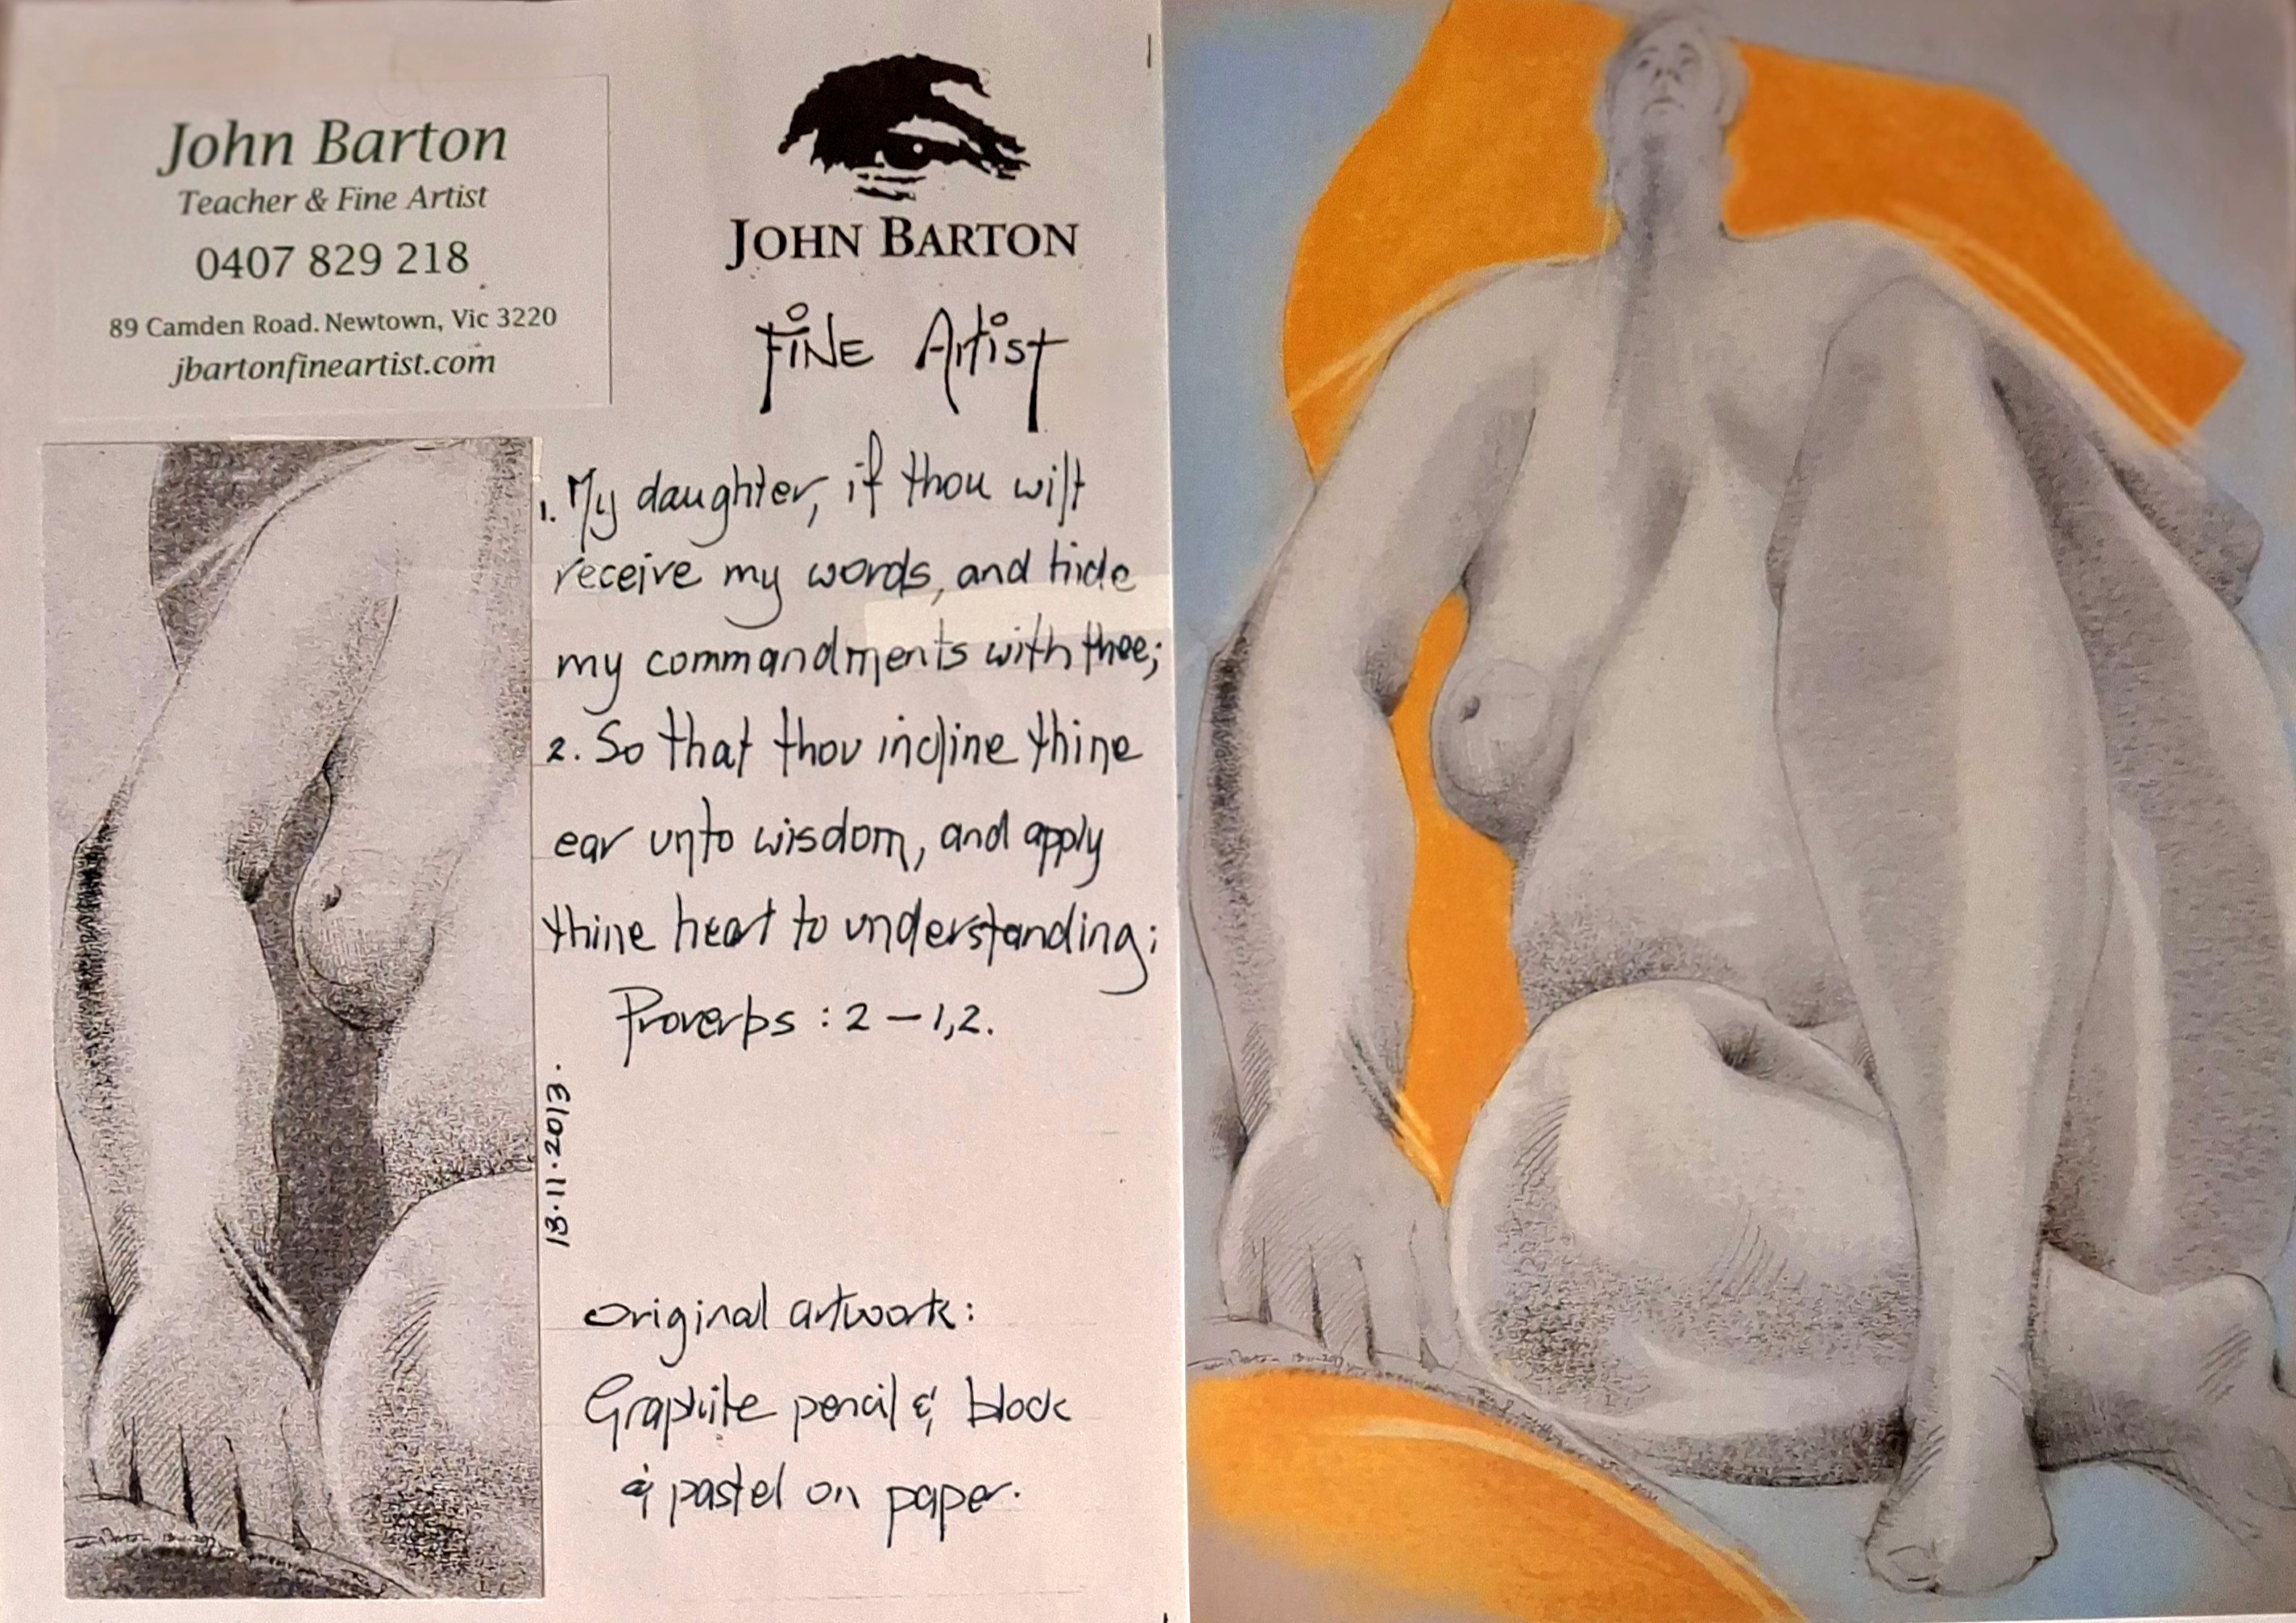 John Barton
Teacher & Fine Artist
0407 829 218
89 Camden Road. Newtown, Vic 3220
jbartonfineartist.com
JOHN BARTON
FINE Artist
1. My daughter, if thou wilt
receive my words, and hide
my commandments with thee;
2. So that thou incline thine
ear unto wisdom, and apply
thine heart to understanding;
Proverbs : 2 – 1,2.
13.11.2013.
Original artwork:
Graphite pencil & block
& pastel on paper.